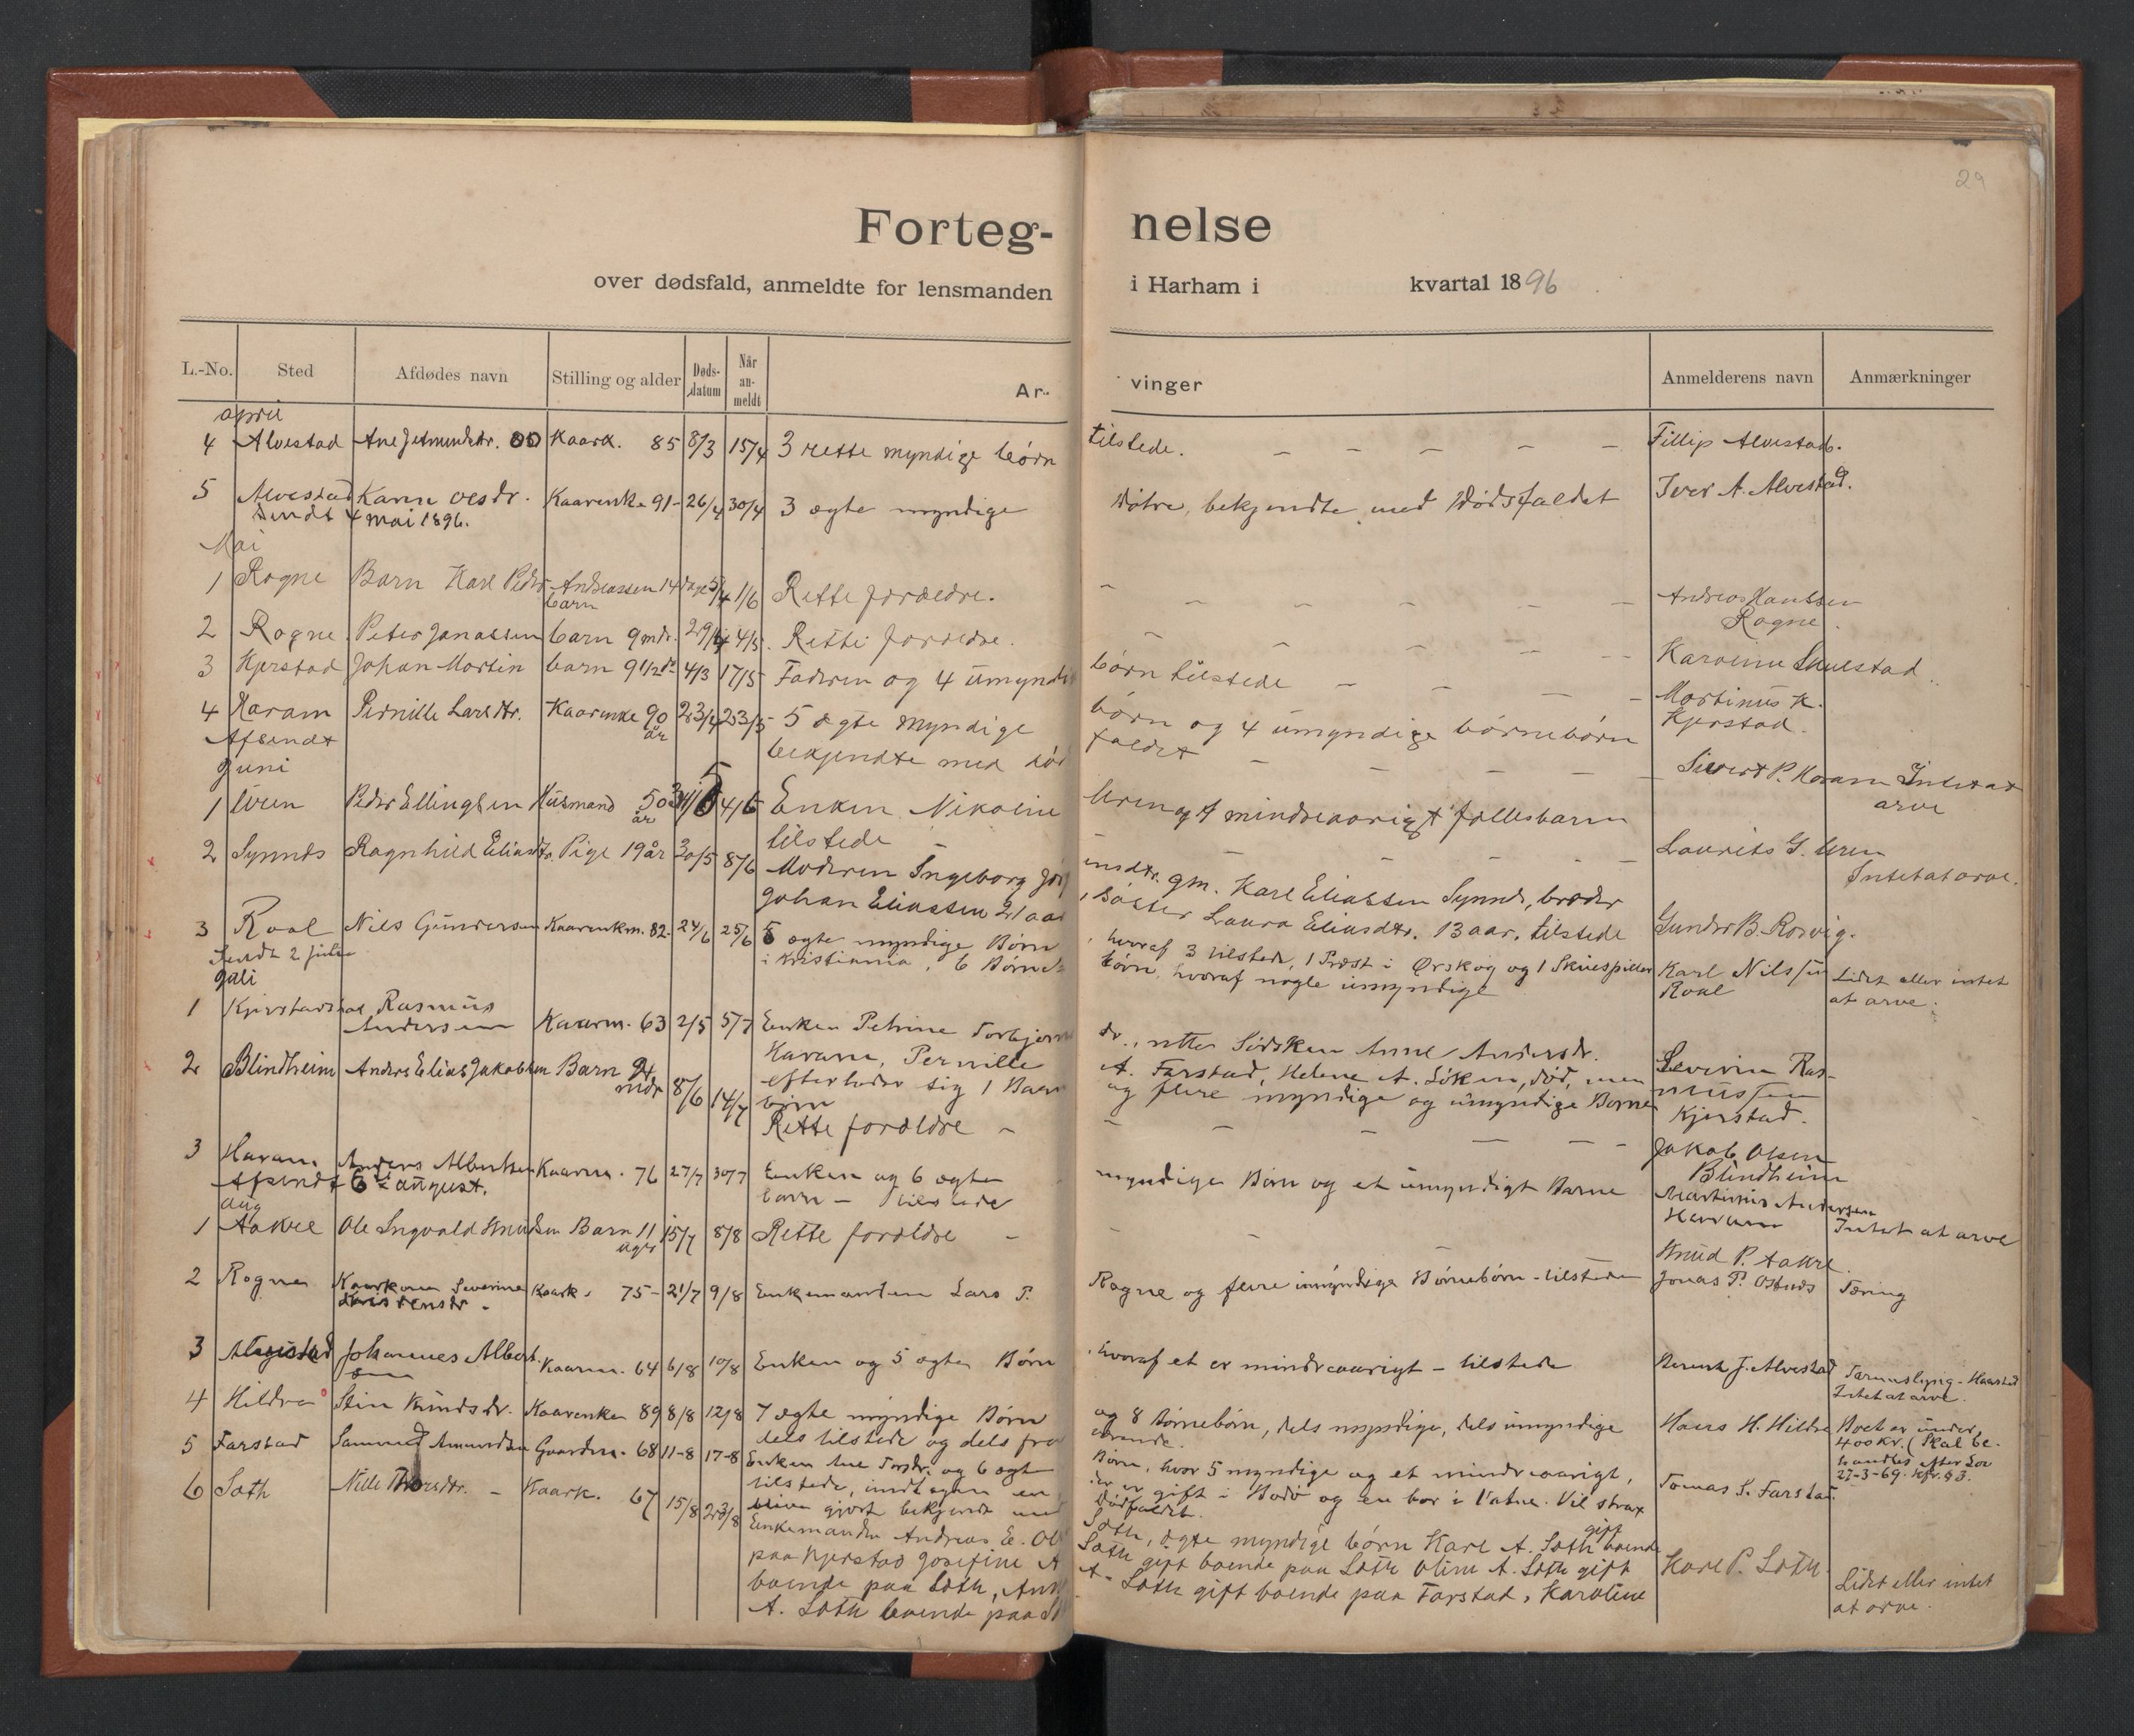 29
Forteg- nelse
over dødsfald, anmeldte for lensmanden i Harham i kvartal 1896
L.-No. Sted Afdødes navn Stilling og alder Døds-datum Når an-meldt Ar- vinger Anmelderens navn Anmærkninger
april
4 Alvestad Ane Jetmundsdr. Kaark. 85 8/3 15/4 3 rette myndige børn tilstede. – – – – – Fillip Alvestad.
5 Alvestad Karen Oesdr. Kaarenke 91- 26/4 30/4 3 ægte myndige Døtre, bekjendte med Dødsfaldet Iver A. Alvestad.
Sendt 4 mai 1896.
Mai
1 Rogne Barn Karl Peder Andreassen 14 dage 1/6 Rette forældre. – – – – – – Andreas Hanssen
barn Rogne.
2 Rogne Peter Janassen barn 9 mdr. 29/4 4/5. Rette forældre. – – – – – Karoline Skulestad
3 Kjerstad Johan Martin barn 9 1/2 4/3 17/5 Faderen og 4 umyndige børn tilstede – – – – Martinus K.
Kjerstad.
4 Haram Pernille Larsdtr. Kaarenke 90 år 23/4 23/5 5 ægte myndige børn og 4 umyndige børnebørn
Afsendt bekjendte med død faldet – – – – – Sivert P. Haram Intet at
arve
Juni
1 Uren Peder Ellingsen Husmand 50 år 4/6 Enken Nikoline Uren og 1 mindreaarigt fællesbarn
tilstede – – – – – Laurits G. Uren
Intet at arve.
2 Synnes Ragnhild Eliasdtr. Pige 19 år 30/5 8/6 Moderen Ingeborg gm. Karl Eliassen Synnes, broder
Johan Eliassen 21 aar, søster Laura Eliasdtr. 13 aar. tilstede Gunder B. Rosvig.
3 Roal Nils Gundersen Kaarenkm. 82- 24/6 25/6 5 ægte myndige Børn, hvoraf 3 tilstede, 1 Præst i Ørskog og 1 Skuespiller Karl Nilssen Lidet eller intet
Sendt 2 juli i Kristiania, 6 Børnebørn, hvoraf nogle umyndige Roal at arve.
Juli
1 Kjerstad Rasmus
Andersen Kaarm. 63 2/5 5/7 Enken Petrine Torbjørnsdr., rette Sødsken Anne Andersdr.
Haram, Pernille A. Farstad, Helene A. Löken, død, men Severin Ras-
efterlader sig 1 Barn og flere myndige og umyndige Børne mussen
børn Kjerstad.
2 Blindheim Anders Elias Jakobsen Barn mdr 8/6 14/7 Rette forældre – – – – – – Jakob Olsen
Blindheim
3 Haram Anders Albertsen Kaarm. 76 27/7 30/7 Enken og 6 ægte myndige Børn og et umyndigt Barne Martinus Andersen
Afsendt 6te august. barn – tilstede Haram Intet at arve
aug
1 Aakre Ole Ingvald Knudsen Barn 11 uger 15/7 8/8 Rette forældre – – – – Knud P. Aakre
2 Rogne Kaarkone Severine Kaark. 75- 21/7 9/8 Enkemanden Lars P. Rogne og flere umyndige Børnebørn – tilstede Jonas P. Tæring
3 Alvestad Johannes Albert-
sen Kaarm. 64 6/8 10/8 Enken og 5 ægte Børn, hvoraf et er mindreaarigt – tilstede J. Alvestad
Intet at arve.
4 Hildre Knudsdr. Kaarenke 89 8/8 12/8 7 ægte myndige Børn og 8 Børnebørn, dels myndige, dels umyndige Hans H. Hildre Boet er under
dels tilstede og dels fraværende. 400 Kr. (Skal be-
handles efter Lov
27-3-69. kfr. § 3.
5 Farstad Samuel Amundsen Gaardm. 68 11-8 17-8 Enken Ane Torsdr. og 6 ægte Børn, hvor 5 myndige og et mindreaarigt, Tomas S. Farstad.
tilstede, undtagen en der er gift i Bodø og en bor i Vatne. Vil strax
blive gjort bekjendt med Dødfaldet.
6 Søth Nille Thorsdtr. – Kaark. 67 15/8 23/8 Enkemanden Andreas E. Søth, ægte myndige børn Karl A. Søth gift boende
paa Kjerstad Josefine A Søth gift boende paa Søth Oline A. Søth gift Karl P. Søth Lidet eller intet
boende paa Søth, A. Søth gift boende paa Farstad, Karoline at arve.
A. Søth boende paa